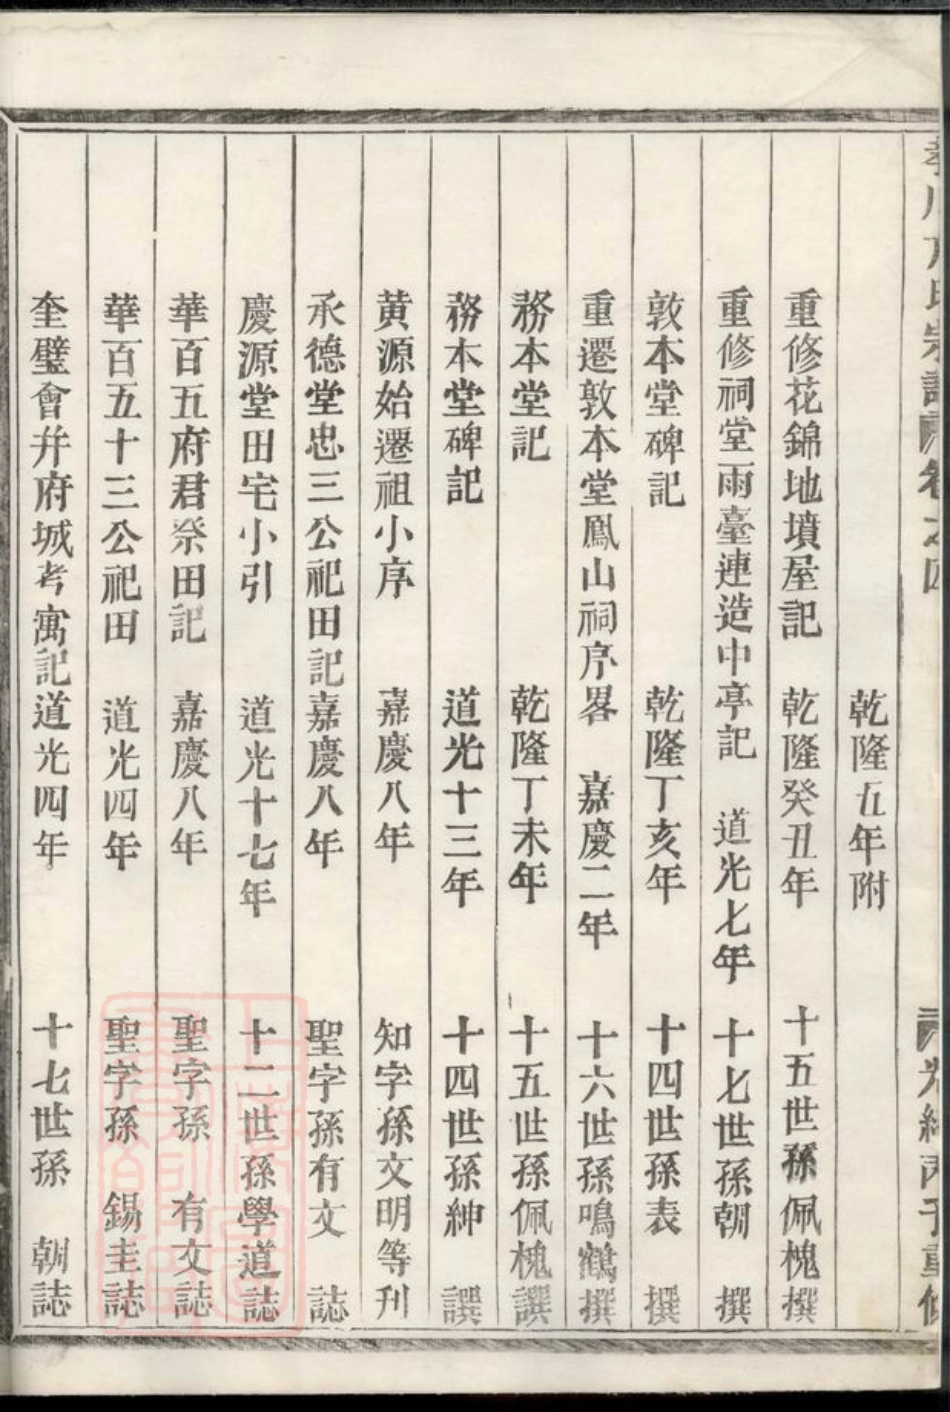 宗譜 卷之四 光緒丙子重修
乾隆五年附
重修花錦地墳屋記 乾隆癸丑年 十五世孫佩槐撰
重修祠堂雨臺連造中亭記 道光七年 十七世孫朝 撰
敦本堂碑記 乾隆丁亥年 十四世孫表 撰
重遷敦本堂鳳山祠序畧 嘉慶二年 十六世孫鳴鶴撰
務本堂記 乾隆丁未年 十五世孫佩槐譔
務本堂碑記 道光十三年 十四世孫紳 譔
黃源始遷祖小序 嘉慶八年 知字孫文明等刋
承德堂忠三公祀田記嘉慶八年 聖字孫有文 誌
慶源堂田宅小引 道光十七年 十二世孫學道誌
華百五府君祭田記 嘉慶八年 聖字孫 有文誌
華百五十三公祀田 道光四年 聖字孫 錫圭誌
奎璧會幷府城考寓記道光四年 十七世孫 朝誌